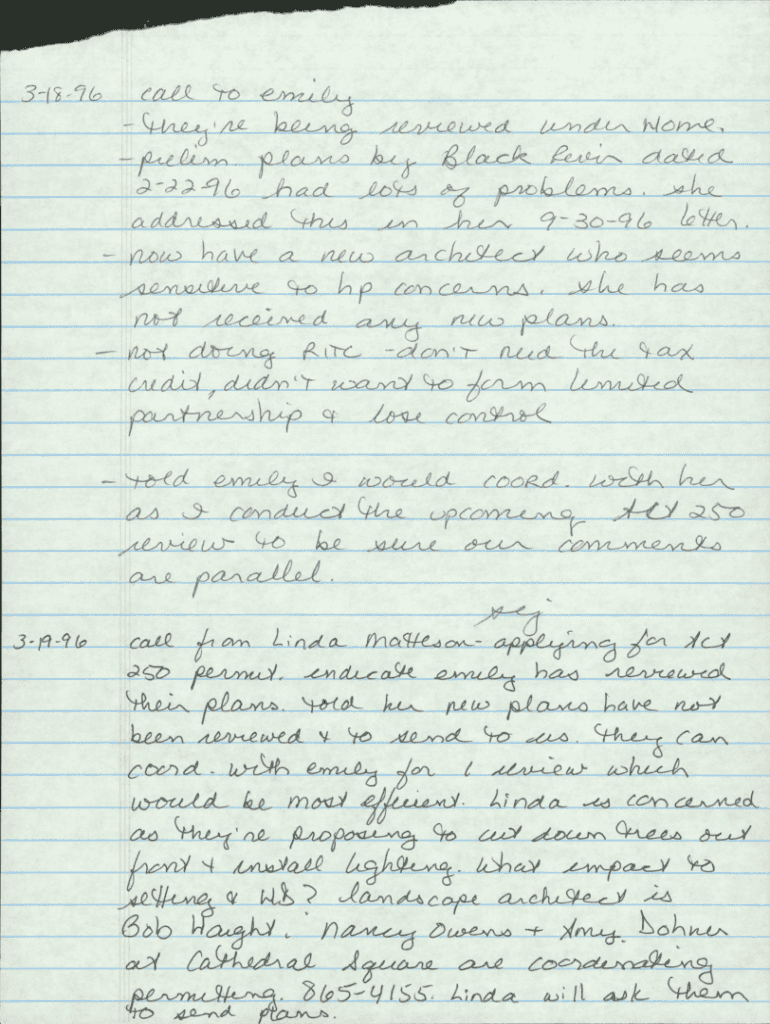 3-18-96 call to emily
- they're being reviewed under Home.
- prelim plans by Black Levin dated
2-22-96 had lots of problems. she
addressed this in her 9-30-96 letter.
- now have a new architect who seems
sensitive to hp concerns. she has
not received any new plans.
- not doing RITC - don't need the tax
credit, didn't want to form limited
partnership & lose control
- told emily I would coord. with her
as I conduct the upcoming Act 250
review to be sure our comments
are parallel.
3-19-96 call from Linda Matteson - applying for Act
250 permit. indicate emily has reviewed
their plans. told her new plans have not
been reviewed & to send to us. they can
coord. with emily for 1 review which
would be most efficient. Linda is concerned
as they're proposing to cut down trees out
front & install lighting. what impact to
setting & HB? landscape architect is
Bob Haight. Nancy Owens + Amy Dohner
at Cathedral Square are coordinating
permitting. 865-4155. Linda will ask them
to send plans.